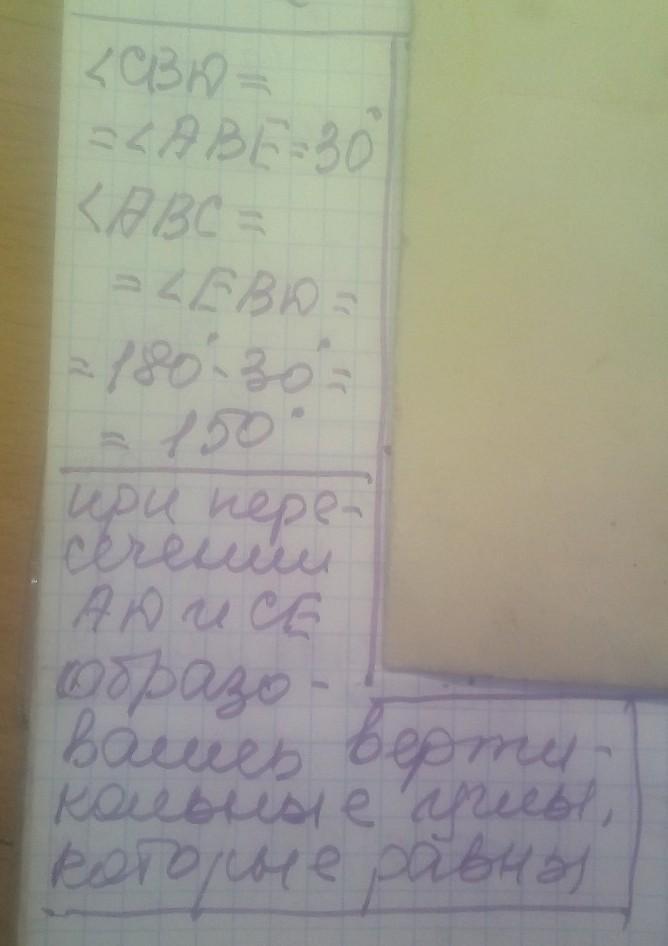 <CBD =
= <ABE = 30°
<ABC =
= <EBD =
= 180° - 30° =
= 150°
при пере-
сечении
AD и CE
образо-
вались верти-
кальные углы,
которые равны